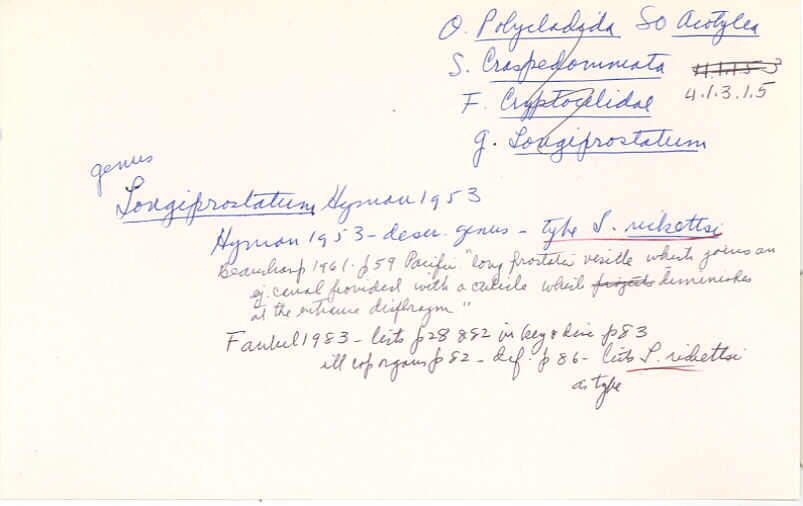 O. Polycladida SO Acotylea
S. Craspedommata 4.1.1.5 3
F. Cryptocelidae 4.1.3.1.5
g. Longiprostatum
genus
Longiprostatum Hyman 1953
Hyman 1953 - descr. genus - type L. rickettsi
Beauchamp 1961 - p59 Pacific "long prostatic vesicle which joins an
ej. canal provided with a cuticle which projects diminishes
at the entrance diaphragm"
Faubel 1983 - lists p28 & 82 in key & disc p83
ill cop organs p82 - def. p86 - lists L. rickettsi
as type